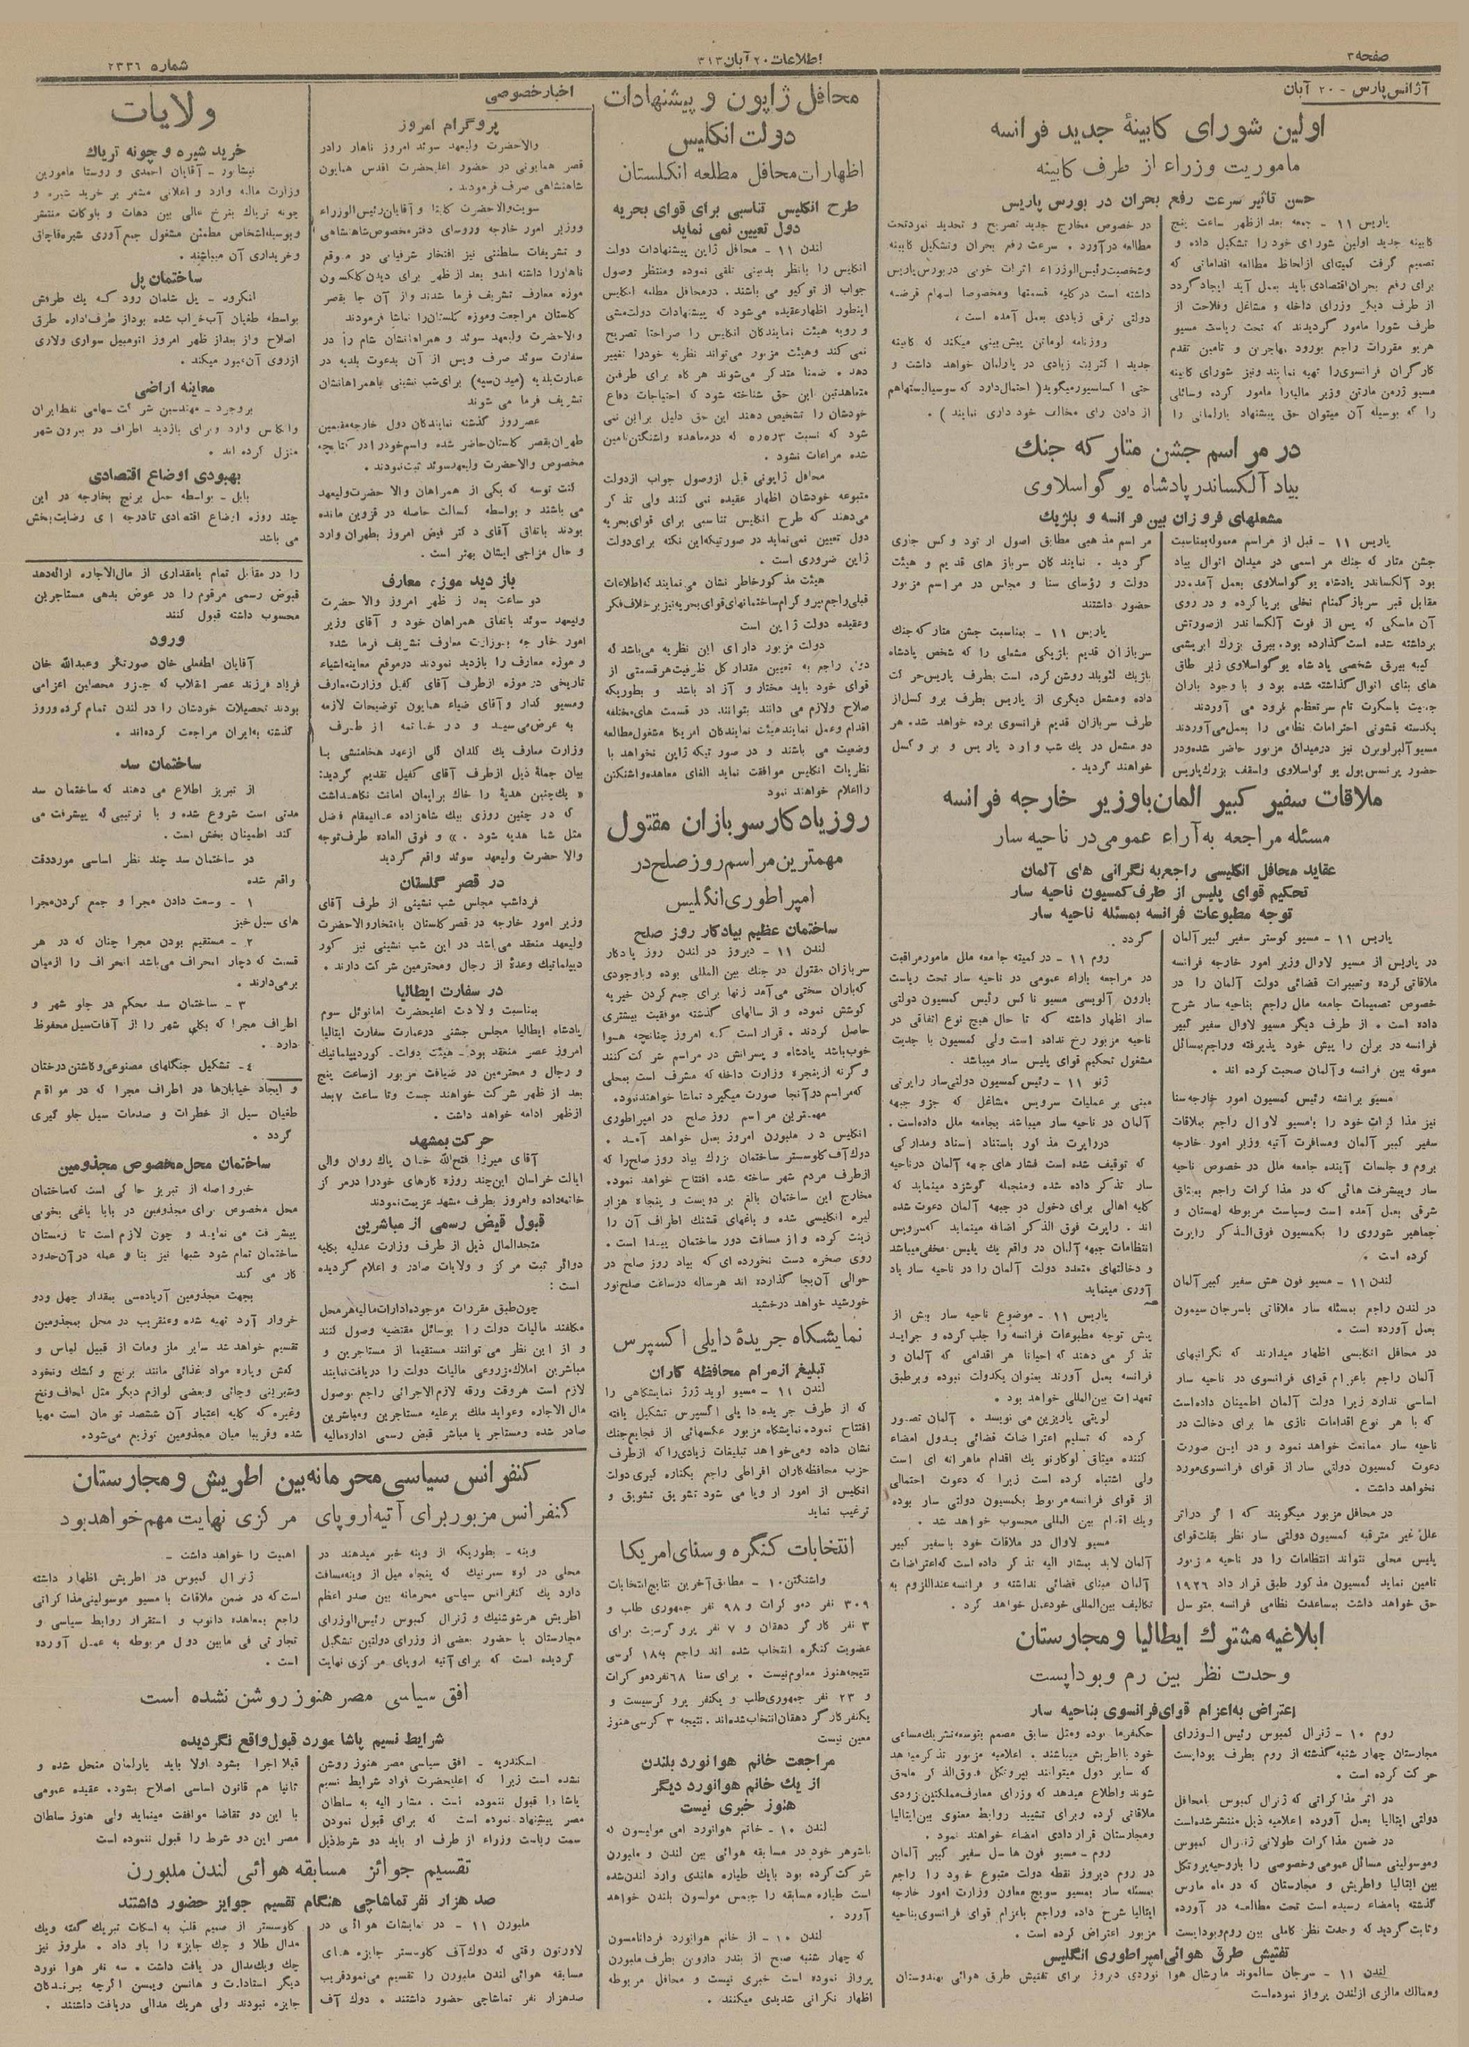 صفحه ۳
اطلاعات ۲۰ آبان ۳۱۳
شماره ۲۳۳۶
آژانس پارس - ۲۰ آبان
اولین شورای کابینهٔ جدید فرانسه
ماموریت وزراء از طرف کابینه
حسن تاثیر سرعت رفع بحران در بورس پاریس
پاریس ۱۱ - جمعه بعد از ظهر ساعت پنج
کابینه جدید اولین شورای خود را تشکیل داده و
تصمیم گرفت کمیته‌ای از لحاظ مطالعه اقداماتی که
برای رفع بحران اقتصادی باید بعمل آید ایجاد گردد
از طرف دیگر وزرای داخله و مشاغل و فلاحت از
طرف شورا مامور گردیدند که تحت ریاست مسیو
هریو مقررات راجع بورود مهاجرین و تامین تقدم
کارگران فرانسوی را تهیه نمایند ونیز شورای کابینه
مسیو ژرمن مارتن وزیر مالیه را مامور کرده وسائلی
را که بوسیله آن میتوان حق پیشنهاد پارلمانی را
در خصوص مخارج جدید تصریح و تحدید نمود تحت
مطالعه در آورد . سرعت رفع بحران و تشکیل کابینه
وشخصیت رئیس الوزراء اثرات خوبی در بورس پاریس
داشته است در کلیه قسمتها ومخصوصا اسهام قرضه
دولتی ترقی زیادی بعمل آمده است ،
روزنامه لوماتن پیش بینی میکند که کابینه
جدید اکثریت زیادی در پارلمان خواهد داشت و
حتی اکسلسیور میگوید ( احتمال دارد که سوسیالیستها هم
از دادن رای مخالف خود داری نمایند ) .
در مراسم جشن متارکه جنك
بیاد آلکساندر پادشاه یوگواسلاوی
مشعلهای فروزان بین فرانسه و بلژیك
پاریس ۱۱ - قبل از مراسم معموله بمناسبت
جشن متارکه جنك مراسمی در میدان اتوال بیاد
بود آلکساندر پادشاه یوگواسلاوی بعمل آمده در
مقابل قبر سرباز گمنام نخلی برپا کرده و در روی
آن ماسکی که پس از فوت آلکساندر از صورتش
برداشته شده است گذارده بود. بیرق بزرك ابریشمی
کتیبه بیرق شخصی پادشاه یوگواسلاوی زیر طاق
های بنای اتوال گذاشته شده بود و با وجود باران
جمعیت باسکوت تام سرتعظیم فرود می آوردند
یکدسته قشونی احترامات نظامی را بعمل می‌آوردند
مسیو آلبرلوبرن نیز در میدان مزبور حاضر شده ودر
حضور پرنسس پول یوگواسلاوی واسقف بزرك پاریس
مراسم مذهبی مطابق اصول ارتودوکس جاری
گردید . نمایندگان سربازهای قدیم و هیئت
دولت و رؤسای سنا و مجلس در مراسم مزبور
حضور داشتند
پاریس ۱۱ - بمناسبت جشن متارکه جنك
سربازان قدیم بلژیکی مشعلی را که شخص پادشاه
بلژیك لئوپلد روشن کرده است بطرف پاریس حرکت
داده ومشعل دیگری از پاریس بطرف بروکسل از
طرف سربازان قدیم فرانسوی برده خواهد شد . هر
دو مشعل در یك شب وارد پاریس و بروکسل
خواهند گردید .
ملاقات سفیر کبیر المان با وزیر خارجه فرانسه
مسئله مراجعه به آراء عمومی در ناحیه سار
عقاید محافل انگلیسی راجع به نگرانی های آلمان
تحکیم قوای پلیس از طرف کمسیون ناحیه سار
توجه مطبوعات فرانسه بمسئله ناحیه سار
پاریس ۱۱ - مسیو کوستر سفیر کبیر آلمان
در پاریس از مسیو لاوال وزیر امور خارجه فرانسه
ملاقاتی کرده وتعبیرات قضائی دولت آلمان را در
خصوص تصمیمات جامعه ملل راجع بناحیه سار شرح
داده است . از طرف دیگر مسیو لاوال سفیر کبیر
فرانسه در برلن را پیش خود پذیرفته و راجع بمسائل
معوقه بین فرانسه و آلمان صحبت کرده اند .
مسیو برانشه رئیس کمسیون امور خارجه سنا
نیز مذاکرات خود را با مسیو لاوال راجع بملاقات
سفیر کبیر آلمان ومسافرت آتیه وزیر امور خارجه
بروم و جلسات آینده جامعه ملل در خصوص ناحیه
سار وپیشرفت هائی که در مذاکرات راجع بمیثاق
شرقی بعمل آمده است وسیاست مربوطه لهستان و
جماهیر شوروی را بکمسیون فوق الذکر راپرت
کرده است .
لندن ۱۱ - مسیو فون هش سفیر کبیر آلمان
در لندن راجع بمسئله سار ملاقاتی با سرجان سیمون
بعمل آورده است .
در محافل انگلیسی اظهار میدارند که نگرانیهای
آلمان راجع باعزام قوای فرانسوی در ناحیه سار
اساسی ندارد زیرا دولت آلمان اطمینان داده است
که با هر نوع اقدامات نازی ها برای دخالت در
ناحیه سار ممانعت خواهد نمود و در این صورت
دعوت کمسیون دولتی سار از قوای فرانسوی مورد
نخواهد داشت .
در محافل مزبور میگویند که اگر در اثر
علل غیر مترقبه کمسیون دولتی سار نظر بقلت قوای
پلیس محلی نتواند انتظامات را در ناحیه مزبور
تامین نماید کمسیون مذکور طبق قرارداد ۱۹۲۶
حق خواهد داشت بمساعدت نظامی فرانسه متوسل
گردد .
روم ۱۱ - در کمیته جامعه ملل مامور مراقبت
در مراجعه باراء عمومی در ناحیه سار تحت ریاست
بارون آلویسی مسیو ناکس رئیس کمسیون دولتی
سار اظهار داشته که تا حال هیچ نوع اتفاقی در
ناحیه مزبور رخ نداده است ولی کمسیون با جدیت
مشغول تحکیم قوای پلیس سار میباشد .
ژنو ۱۱ - رئیس کمسیون دولتی سار راپرتی
مبنی بر عملیات سرویس مشاغل که جزو جبهه
آلمان در ناحیه سار میباشد بجامعه ملل داده است .
در راپرت مذکور باستناد اسناد ومدارکی
که توقیف شده است فشارهای جبهه آلمان در ناحیه
سار تذکر داده شده ومنجمله گوشزد مینماید که
کلیه اهالی برای دخول در جبهه آلمان دعوت شده
اند . راپرت فوق الذکر اضافه مینماید که سرویس
انتظامات جبهه آلمان در واقع یك پلیس مخفی میباشد
و دخالتهای متعدد دولت آلمان را در ناحیه سار یاد
آوری مینماید
پاریس ۱۱ - موضوع ناحیه سار بیش از
پیش توجه مطبوعات فرانسه را جلب کرده و جراید
تذکر می دهند که احیانا هر اقدامی که آلمان و
فرانسه بعمل آورند بعنوان یکدولت نبوده و برطبق
تعهدات بین المللی خواهد بود .
لوپتی پاریزین می نویسد . آلمان تصور
کرده که تسلیم اعتراضات قضائی بدول امضاء
کننده میثاق لوکارنو یك اقدام ماهرانه ای است
ولی اشتباه کرده است زیرا که دعوت احتمالی
از قوای فرانسه مربوط بکمسیون دولتی سار بوده
ویك اقدام بین المللی محسوب خواهد شد .
مسیو لاوال در ملاقات خود با سفیر کبیر
آلمان لابد بمشار الیه تذکر داده است که اعتراضات
آلمان مبنای قضائی نداشته و فرانسه عنداللزوم به
تکالیف بین المللی خود عمل خواهد کرد .
ابلاغیه مشترك ایطالیا و مجارستان
وحدت نظر بین رم و بوداپست
اعتراض به اعزام قوای فرانسوی بناحیه سار
روم ۱۰ - ژنرال کمبوس رئیس الوزرای
مجارستان چهار شنبه گذشته از روم بطرف بوداپست
حرکت کرده است .
در اثر مذاکراتی که ژنرال کمبوس با محافل
دولتی ایتالیا بعمل آورده اعلامیه ذیل منتشر شده است
در ضمن مذاکرات طولانی ژنرال کمبوس
وموسولینی مسائل عمومی وخصوصی را با روحیه پروتکل
بین ایتالیا واطریش و مجارستان که در ماه مارس
گذشته بامضاء رسیده است تحت مطالعه در آورده
وثابت گردید که وحدت نظر کاملی بین روم و بوداپست
حکمفرما بوده ومثل سابق مصمم بتوسعه تشریك مساعی
خود با اطریش میباشند . اعلامیه مزبور تذکر میدهد
که سایر دول میتوانند بپروتکل فوق الذکر ملحق
شوند واطلاع میدهد که وزرای معارف مملکتین زودی
ملاقاتی کرده وبرای تشیید روابط معنوی بین ایتالیا
ومجارستان قراردادی امضاء خواهند نمود .
روم - مسیو فون هاسل سفیر کبیر آلمان
در روم دیروز نقطه دولت متبوع خود را راجع
بمسئله سار بمسیو سویچ معاون وزارت امور خارجه
ایتالیا شرح داده وراجع باعزام قوای فرانسوی بناحیه
مزبور اعتراض کرده است .
تفتیش طرق هوائی امپراطوری انگلیس
لندن ۱۱ - سرجان سالموند مارشال هوا نوردی دیروز برای تفتیش طرق هوائی بهندوستان
وممالك مالزی از لندن پرواز نموده است
محافل ژاپون و پیشنهادات
دولت انگلیس
اظهارات محافل مطلعه انگلستان
طرح انگلیس تناسبی برای قوای بحریه
دول تعیین نمی نماید
لندن ۱۱ - محافل ژاپن پیشنهادات دولت
انگلیس را بانظر بدبینی تلقی نموده ومنتظر وصول
جواب از توکیو می باشند . در محافل مطلعه انگلیس
اینطور اظهار عقیده می‌شود که پیشنهادات دولت مشی
و رویه هیئت نمایندگان انگلیس را صراحتا تصریح
نمی کند وهیئت مزبور می‌تواند نظریه خود را تغییر
دهد . ضمنا متذکر می‌شوند هرگاه برای طرفین
متعاهدتین این حق شناخته شود که احتیاجات دفاع
خودشان را تشخیص دهند این حق دلیل براین نمی
شود که نسبت ۵ر۵ر۳ که در معاهده واشنگتن تامین
شده مراعات نشود .
محافل ژاپونی قبل از وصول جواب از دولت
متبوعه خودشان اظهار عقیده نمی کنند ولی تذکر
می‌دهند که طرح انگلیس تناسبی برای قوای بحریه
دول تعیین نمی‌نماید در صورتیکه این نکته برای دولت
ژاپن ضروری است .
هیئت مذکور خاطر نشان می‌نمایند که اطلاعات
قبلی راجع بپروگرام ساختمانهای قوای بحریه نیز بر خلاف فکر
وعقیده دولت ژاپن است
دولت مزبور دارای این نظریه می‌باشد که
دول راجع به تعیین مقدار کل ظرفیت هر قسمتی از
قوای خود باید مختار و آزاد باشد و بطوریکه
صلاح ولازم می دانند بتوانند در قسمت های مختلفه
اقدام وعمل نمایند هیئت نمایندگان امریکا مشغول مطالعه
وضعیت می باشند و در صورتیکه ژاپن نخواهد با
نظریات انگلیس موافقت نماید الغای معاهده واشنگتن
را اعلام خواهند نمود
روز یادگار سربازان مقتول
مهمترین مراسم روز صلح در
امپراطوری انگلیس
ساختمان عظیم بیادگار روز صلح
لندن ۱۱ - دیروز در لندن روز یادگار
سربازان مقتول در جنك بین المللی بوده و باوجودی
که باران سختی می‌آمد زنها برای جمع کردن خیریه
کوشش نموده و از سالهای گذشته موفقیت بیشتری
حاصل کردند . قرار است که امروز چنانچه هوا
خوب باشد پادشاه و پسرانش در مراسم شرکت کنند
وگرنه از پنجره وزارت داخله که مشرف است بمحلی
که مراسم در آنجا صورت میگیرد تماشا خواهند نمود.
مهمترین مراسم روز صلح در امپراطوری
انگلیس در ملبورن امروز بعمل خواهد آمد .
دوك آف گلوسستر ساختمان بزرك بیاد روز صلح را که
از طرف مردم شهر ساخته شده افتتاح خواهد نمود.
مخارج این ساختمان بالغ بر دویست و پنجاه هزار
لیره انگلیسی شده و باغهای قشنك اطراف آن را
زینت کرده و از مسافت دور ساختمان پیدا است .
روی صخره دست نخورده ای که بیاد روز صلح در
حوالی آن بجا گذارده اند هر ساله در ساعت صلح نور
خورشید خواهد درخشید
نمایشگاه جریدهٔ دایلی اکسپرس
تبلیغ از مرام محافظه کاران
لندن ۱۱ - مسیو لوید ژرژ نمایشگاهی را
که از طرف جریده دایلی اکسپرس تشکیل یافته
افتتاح نمود، نمایشگاه مزبور عکسهائی از فجایع جنك
نشان داده ومی‌خواهد تبلیغات زیادی را که از طرف
حزب محافظه کاران افراطی راجع بکناره گیری دولت
انگلیس از امور اروپا می شود تشویق و
ترغیب نماید
انتخابات کنگره و سنای امریکا
واشنگتن ۱۰ - مطابق آخرین نتایج انتخابات
۳۰۹ نفر دموکرات و ۹۸ نفر جمهوری طلب و
۳ نفر کارگر دهقان و ۷ نفر پروگرسیت برای
عضویت کنگره انتخاب شده اند راجع به ۱۸ کرسی
نتیجه هنوز معلوم نیست . برای سنا ۶۸ نفر دموکرات
و ۲۳ نفر جمهوری طلب و یکنفر پروگرسیست و
یکنفر کارگر دهقان انتخاب شده‌اند . نتیجه ۳ کرسی هنوز
معین نیست
مراجعت خانم هوانورد بلندن
از یك خانم هوانورد دیگر
هنوز خبری نیست
لندن ۱۰ - خانم هوانورد امی مولیسون که
باشوهر خود در مسابقه هوائی بین لندن و ملبورن
شرکت کرده بود بایك طیاره هلندی وارد لندن شده
است طیاره مسابقه را جیمس مولسون بلندن خواهد
آورد .
لندن ۱۰ - از خانم هوانورد فردا تامسون
که چهار شنبه صبح از بندر داروین بطرف ملبورن
پرواز نموده است خبری نیست و محافل مربوطه
اظهار نگرانی شدیدی میکنند .
اخبار خصوصی
پروگرام امروز
والاحضرت ولیعهد سوئد امروز ناهار را در
قصر همایونی در حضور اعلیحضرت اقدس همایون
شاهنشاهی صرف فرمودند .
سویت والاحضرت و آقایان رئیس الوزراء
ووزیر امور خارجه وروسای دفتر مخصوص شاهنشاهی
و تشریفات سلطنتی نیز افتخار شرفیابی در موقع
ناهار را داشته اند و بعد از ظهر برای دیدن کلکسیون
موزه معارف تشریف فرما شدند و از آن جا بقصر
گلستان مراجعت وموزه گلستان را تماشا فرمودند
والاحضرت ولیعهد سوئد و همراهانشان شام را در
سفارت سوئد صرف وپس از آن بدعوت بلدیه در
عمارت بلدیه (میدان سپه) برای شب نشینی باهمراهانشان
تشریف فرما می شوند
عصر روز گذشته نمایندگان دول خارجه مقیمین
طهران بقصر گلستان حاضر شده واسم خود را در کتابچه
مخصوص والاحضرت ولیعهد سوئد ثبت نمودند .
کنت توسه که یکی از همراهان والا حضرت ولیعهد
می باشند و بواسطه کسالت حاصله در قزوین مانده
بودند باتفاق آقای دکتر فیض امروز بطهران وارد
و حال مزاجی ایشان بهتر است .
بازدید موزه معارف
دو ساعت بعد از ظهر امروز والا حضرت
ولیعهد سوئد باتفاق همراهان خود و آقای وزیر
امور خارجه بوزارت معارف تشریف فرما شده
و موزه معارف را بازدید نمودند در موقع معاینه اشیاء
تاریخی در موزه از طرف آقای کفیل وزارت معارف
ومسیو گدار و آقای ضیاء همایون توضیحات لازمه
به عرض می‌رسید و در خاتمه از طرف
وزارت معارف یك گلدان گلی از عهد هخامنشی با
بیان جملهٔ ذیل از طرف آقای کفیل تقدیم گردید:
« یك چنین هدیهٔ را خاك برایمان امانت نگاهداشت
که در چنین روزی بیك شاهزاده عالیمقام فضل
مثل شما هدیه شود . » و فوق العاده طرف توجه
والا حضرت ولیعهد سوئد واقع گردید
در قصر گلستان
فردا شب مجلس شب نشینی از طرف آقای
وزیر امور خارجه در قصر گلستان بافتخار والاحضرت
ولیعهد منعقد می‌باشد در این شب نشینی نیز کور
دیپلماتیك وعدهٔ از رجال و محترمین شرکت دارند .
در سفارت ایطالیا
بمناسبت ولادت اعلیحضرت امانوئل سوم
پادشاه ایطالیا مجلس جشنی در عمارت سفارت ایتالیا
امروز عصر منعقد بود . هیئت دولت ، کوردیپلماتیك
و رجال و محترمین در ضیافت مزبور از ساعت پنج
بعد از ظهر شرکت خواهند جست وتا ساعت ۷ بعد
از ظهر ادامه خواهد داشت .
حرکت بمشهد
آقای میرزا فتح الله خان پاك روان والی
ایالت خراسان این چند روزه کارهای خود را در مرکز
خاتمه داده و امروز بطرف مشهد عزیمت نمودند
قبول قبض رسمی از مباشرین
متحدالمال ذیل از طرف وزارت عدلیه بکلیه
دوائر ثبت مرکز و ولایات صادر و اعلام گردیده
است :
چون طبق مقررات موجوده ادارات مالیه هر محل
مکلفند مالیات دولت را بوسائل مقتضیه وصول کنند
و از این نظر می توانند مستقیما از مستاجرین و
مباشرین املاك مزروعی مالیات دولت را دریافت نمایند
لازم است هر وقت ورقه لازم الاجرائی راجع بوصول
مال الاجاره وعواید ملك برعلیه مستاجرین ومباشرین
صادر شده ومستاجر یا مباشر قبض رسمی اداره مالیه
ولایات
خرید شیره و چونه تریاك
نیشابور - آقایان احمدی و روستا مامورین
وزارت مالیه وارد و اعلانی مشعر بر خرید شیره و
چونه تریاك بنرخ عالی بین دهات و بلوکات منتشر
وبوسیله اشخاص مطمئن مشغول جمع آوری شیره قاچاق
وخریداری آن میباشند .
ساختمان پل
لنگرود - پل شلمان رود که یك طرفش
بواسطه طغیان آب خراب شده بود از طرف اداره طرق
اصلاح و از بعد از ظهر امروز اتومبیل سواری ولاری
از روی آن عبور میکند .
معاینه اراضی
بروجرد - مهندسین شرکت سهامی نفط ایران
وانگلس وارد وبرای بازدید اطراف در بیرون شهر
منزل کرده اند .
بهبودی اوضاع اقتصادی
بابل - بواسطه حمل برنج بخارجه در این
چند روزه اوضاع اقتصادی تا درجه ای رضایت بخش
می باشد
را در مقابل تمام یا مقداری از مال الاجاره ارائه دهد
قبوض رسمی مرقوم را در عوض بدهی مستاجرین
محسوب داشته قبول کنند
ورود
آقایان لطفعلی خان صورتگر وعبدالله خان
فریاد فرزند عصر انقلاب که جزو محصلین اعزامی
بودند تحصیلات خودشان را در لندن تمام کرده و روز
گذشته به ایران مراجعت کرده‌اند .
ساختمان سد
از تبریز اطلاع می دهند که ساختمان سد
مدتی است شروع شده و با ترتیبی که پیشرفت می
کند اطمینان بخش است .
در ساختمان سد چند نظر اساسی مورد دقت
واقع شده
۱ - وسعت دادن مجرا و جمع کردن مجرا
های سیل خیز
۲ - مستقیم بودن مجرا چنان که در هر
قسمت که دچار انحراف می‌باشد انحراف را از میان
برمی‌دارند .
۳ - ساختمان سد محکم در جلو شهر و
اطراف مجرا که بکلی شهر را از آفات سیل محفوظ
دارد .
٤ - تشکیل جنگلهای مصنوعی وکاشتن درختان
و ایجاد خیابان‌ها در اطراف مجرا که در مواقع
طغیان سیل از خطرات و صدمات سیل جلوگیری
گردد .
ساختمان محل مخصوص مجذومین
خبر واصله از تبریز حاکی است که ساختمان
محل مخصوص برای مجذومین در بابا باغی بخوبی
پیشرفت می نماید و چون لازم است تا زمستان
ساختمان تمام شود شبها نیز بنا و عمله در آن حدود
کار می کند
بجهت مجذومین آرد باده‌سی بمقدار چهل ودو
خروار آرد تهیه شده وعنقریب در محل بمجذومین
تقسیم خواهد شد سایر ملزومات از قبیل لباس و
کفش وپاره مواد غذائی مانند برنج و کشك ونخود
وشیرینی وچائی وبعضی لوازم دیگر مثل لحاف ونخ
وغیره که کلیه اعتبار آن ششصد تومان است مهیا
شده وقریبا میان مجذومین توزیع می‌شود.
کنفرانس سیاسی محرمانه بین اطریش و مجارستان
کنفرانس مزبور برای آتیه اروپای مرکزی نهایت مهم خواهد بود
وینه - بطوریکه از وینه خبر میدهند در
محلی در که پنجاه میل از وینه مسافت
دارد یك کنفرانس سیاسی محرمانه بین صدر اعظم
اطریش هرشوشنیك و ژنرال کمبوس رئیس الوزرای
مجارستان با حضور بعضی از وزرای دولتین تشکیل
گردیده است که برای آتیه اروپای مرکزی نهایت
اهمیت را خواهد داشت .
ژنرال کمبوس در اطریش اظهار داشته
است که در ضمن ملاقات با مسیو موسولینی مذاکراتی
راجع بمعاهده دانوب و استقرار روابط سیاسی و
تجارتی فی مابین دول مربوطه به عمل آورده
است .
افق سیاسی مصر هنوز روشن نشده است
شرایط نسیم پاشا مورد قبول واقع نگردیده
اسکندریه - افق سیاسی مصر هنوز روشن
نشده است زیرا که اعلیحضرت فواد شرایط نسیم
پاشا را قبول ننموده است . مشار الیه به سلطان
مصر پیشنهاد نموده است که برای قبول نمودن
سمت ریاست وزراء از طرف او باید دو شرط ذیل
قبلا اجرا بشود اولا باید پارلمان منحل شده و
ثانیا هم قانون اساسی اصلاح بشود، عقیده عمومی
با این دو تقاضا موافقت مینماید ولی هنوز سلطان
مصر این دو شرط را قبول ننموده است
تقسیم جوائز مسابقه هوائی لندن ملبورن
صد هزار نفر تماشاچی هنگام تقسیم جوایز حضور داشتند
ملبورن ۱۱ - در نمایشات هوائی در
لاورتون وقتی که دوك آف گلوسستر جایزه های
مسابقه هوائی لندن ملبورن را تقسیم می‌نمود قریب
صد هزار نفر تماشاچی حضور داشتند . دوك آف
گلوسستر از صمیم قلب به اسکات تبریك گفته ویك
مدال طلا و چك جایزه را باو داد . ملروز نیز
چك ویك مدال دریافت داشت . سه نفر هوا نورد
دیگر استادارت و هانسن وپیسن اگرچه برندگان
جایزه نبودند ولی هریك مدالی دریافت داشتند .